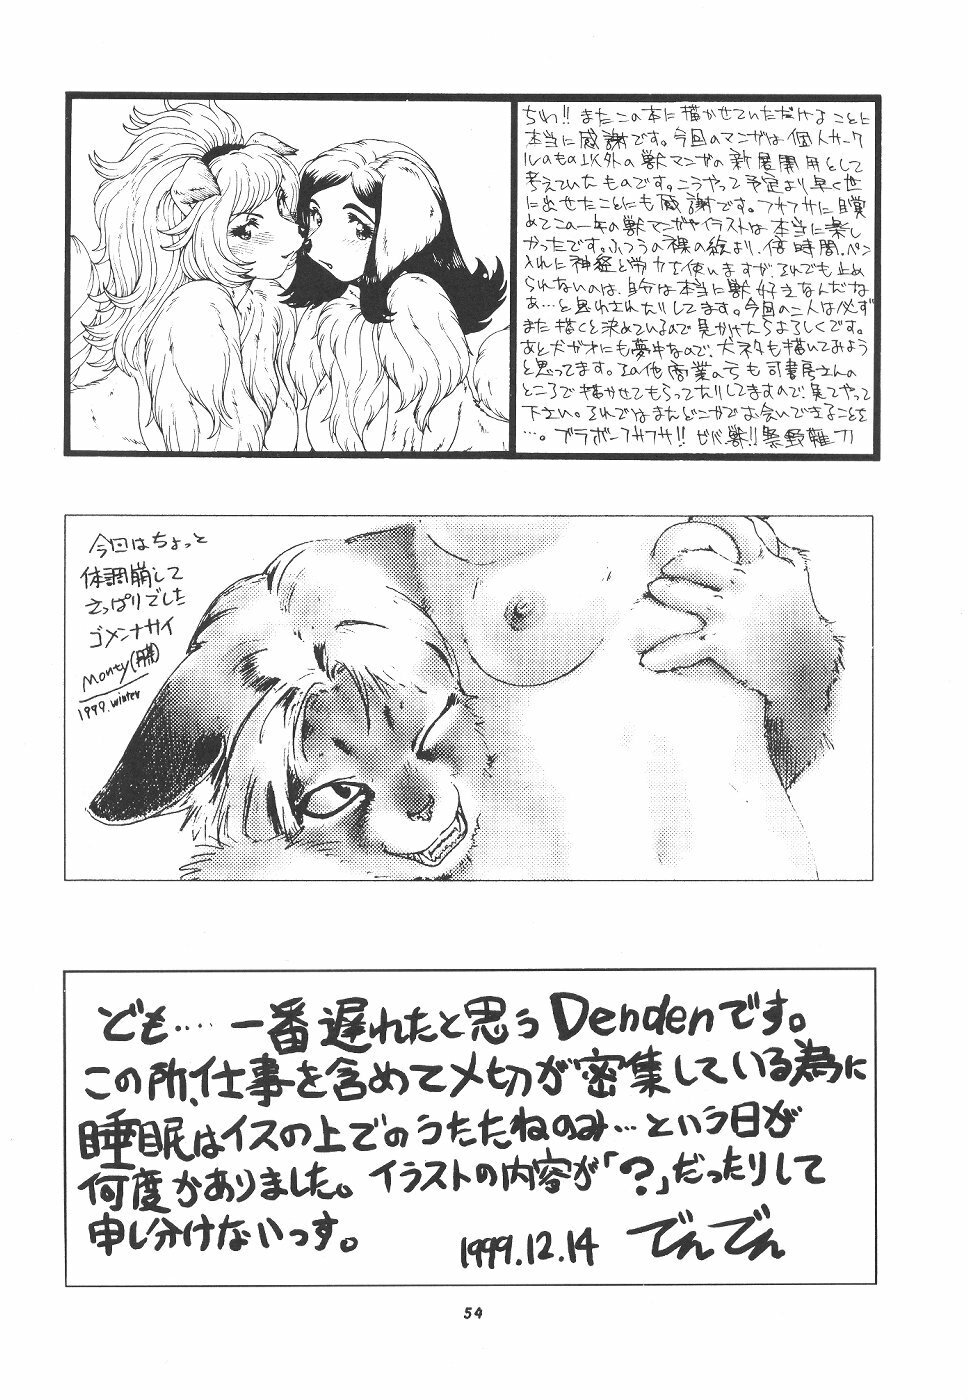 ちわ!! またこの本に描かせていただけることに
本当に感謝です。今回のマンガは個人サーク
ルのもの以外の獣マンガの新展開用として
考えていたものです。こうやって予定より早く世
に出せたことにも感謝です。フサフサに目覚
めてこの一年の獣マンガやイラストは本当に楽し
かったです。ふつうの裸の絵より、倍時間、ペン
入れに神経と労力を使いますが、それでも止め
られないのは、自分は本当に獣好きなんだな
あ…と思わされたりしてます。今回の二人は必ず
また描くと決めているので見かけたらよろしくです。
あと犬ガオにも夢中なので、犬ネタも描いてみよう
と思ってます。その他商業の方も司書房さんの
ところで描かせてもらってたりしてますので、見てやって
下さい。それではまたどこかでお会いできることを
…。ブラボーフサフサ!! ビバ獣!!
今回はちょっと
体調崩して
さっぱりでした
ゴメンナサイ
Monty
1999.winter
ども‥‥一番遅れたと思うDendenです。
この所、仕事を含めて〆切が密集している為に
睡眠はイスの上でのうたたねのみ…という日が
何度かありました。イラストの内容が「?」だったりして
申し分けないっす。
1999.12.14 でんでん
54